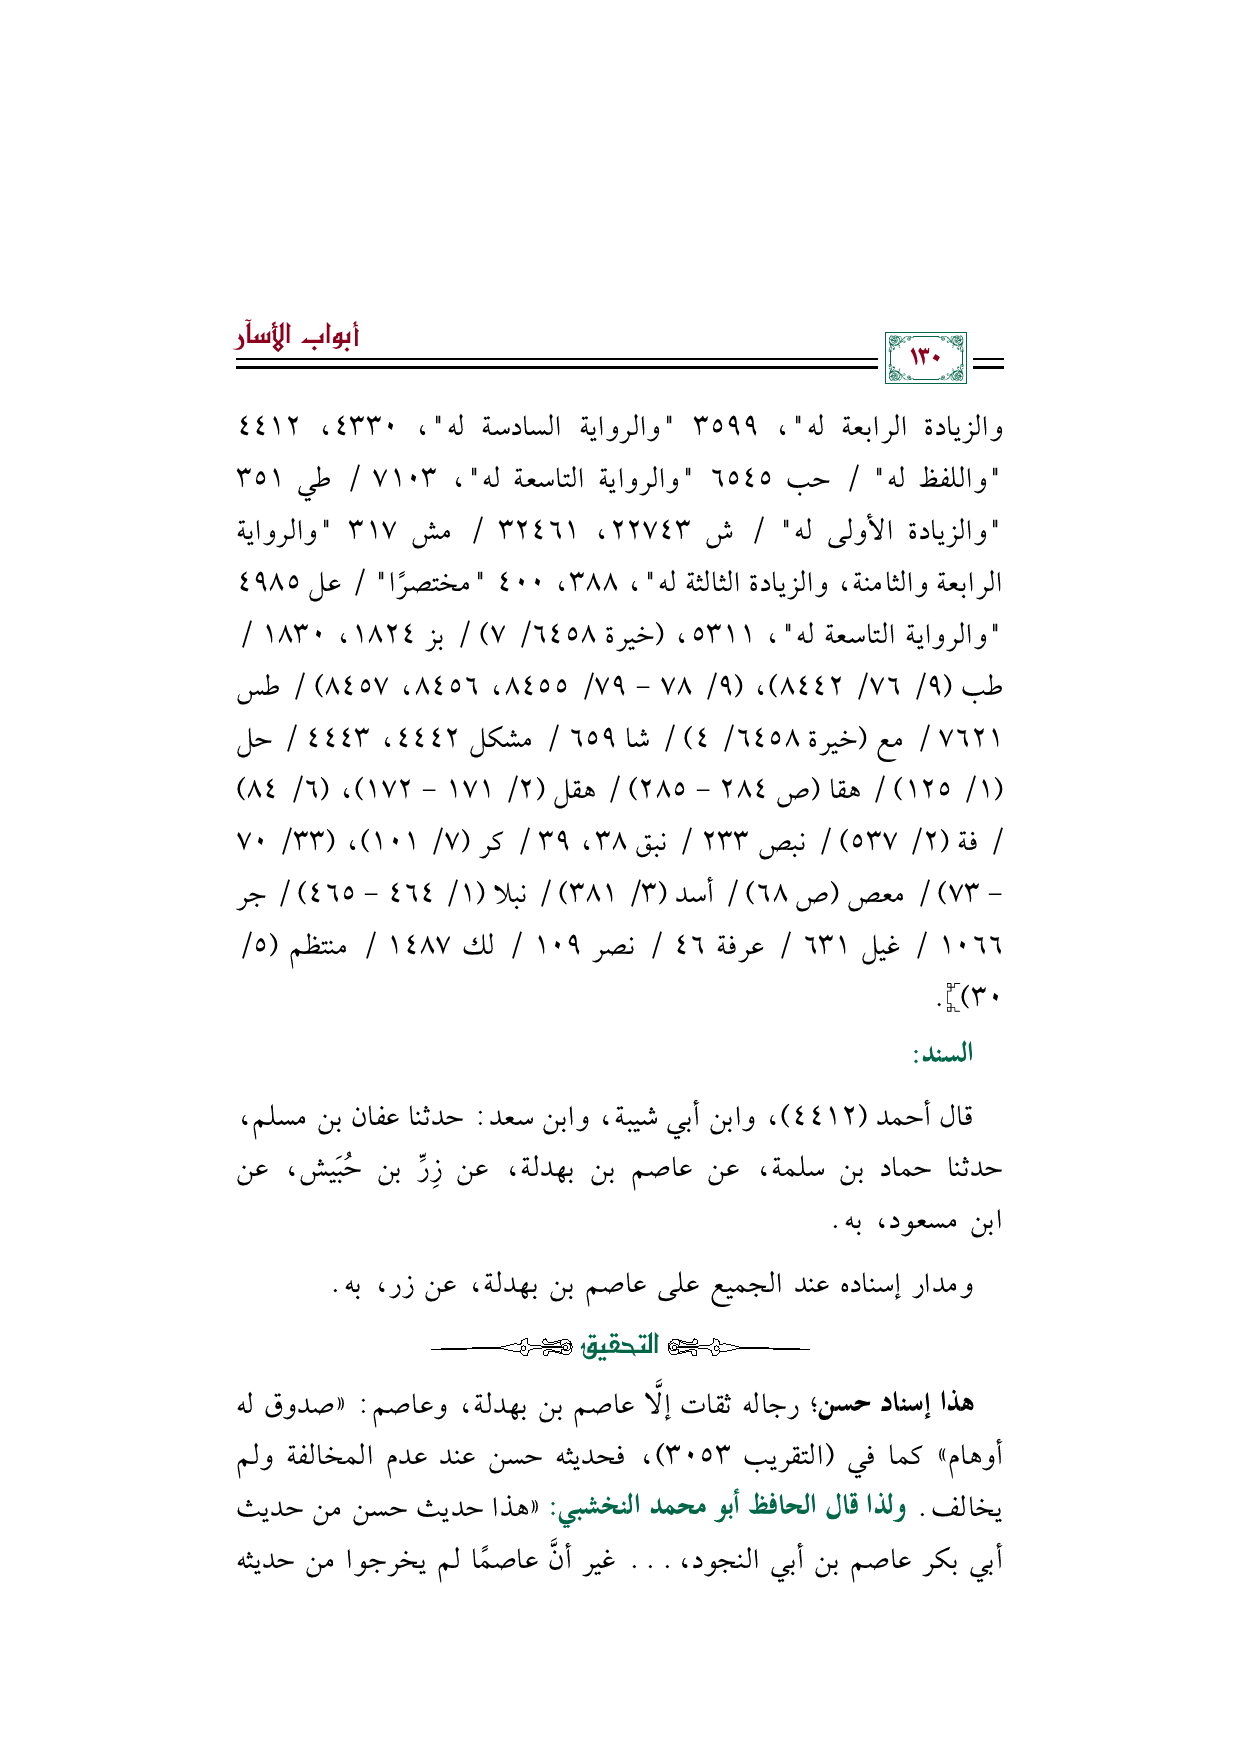 أبواب الأسآر
١٣٠
والزيادة الرابعة له"، ٣٥٩٩ "والرواية السادسة له"، ٤٣٣٠، ٤٤١٢
"واللفظ له" / حب ٦٥٤٥ "والرواية التاسعة له"، ٧١٠٣ / طي ٣٥١
"والزيادة الأولى له" / ش ٢٢٧٤٣، ٣٢٤٦١ / مش ٣١٧ "والرواية
الرابعة والثامنة، والزيادة الثالثة له"، ٣٨٨، ٤٠٠ "مختصرًا" / عل ٤٩٨٥
"والرواية التاسعة له"، ٥٣١١، (خيرة ٦٤٥٨/ ٧) / بز ١٨٢٤، ١٨٣٠ /
طب (٩/ ٧٦/ ٨٤٤٢)، (٩/ ٧٨ – ٧٩/ ٨٤٥٥، ٨٤٥٦، ٨٤٥٧) / طس
٧٦٢١ / مع (خيرة ٦٤٥٨/ ٤) / شا ٦٥٩ / مشكل ٤٤٤٢، ٤٤٤٣ / حل
(١/ ١٢٥) / هقا (ص ٢٨٤ – ٢٨٥) / هقل (٢/ ١٧١ – ١٧٢)، (٦/ ٨٤)
/ فة (٢/ ٥٣٧) / نبص ٢٣٣ / نبق ٣٨، ٣٩ / كر (٧/ ١٠١)، (٣٣/ ٧٠
– ٧٣) / معص (ص ٦٨) / أسد (٣/ ٣٨١) / نبلا (١/ ٤٦٤ – ٤٦٥) / جر
١٠٦٦ / غيل ٦٣١ / عرفة ٤٦ / نصر ١٠٩ / لك ١٤٨٧ / منتظم (٥/
٣٠)].
السند:
قال أحمد (٤٤١٢)، وابن أبي شيبة، وابن سعد: حدثنا عفان بن مسلم،
حدثنا حماد بن سلمة، عن عاصم بن بهدلة، عن زِرِّ بن حُبَيش، عن
ابن مسعود، به.
ومدار إسناده عند الجميع على عاصم بن بهدلة، عن زر، به.
التحقيق
هذا إسناد حسن؛ رجاله ثقات إلَّا عاصم بن بهدلة، وعاصم: «صدوق له
أوهام» كما في (التقريب ٣٠٥٣)، فحديثه حسن عند عدم المخالفة ولم
يخالف. ولذا قال الحافظ أبو محمد النخشبي: «هذا حديث حسن من حديث
أبي بكر عاصم بن أبي النجود،... غير أنَّ عاصمًا لم يخرجوا من حديثه